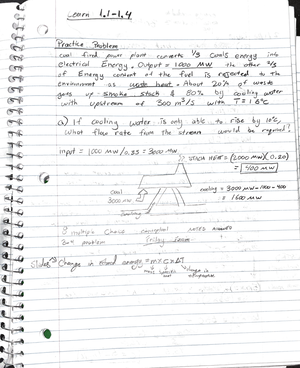 Learn 1.1-1.4
Practice Problem
coal fired power plane converts 1/3 coals energy into
electrical Energy. Output = 1000 MW the other 2/3
of Energy content of the fuel is rejected to the
environment as waste heat. About 20% of waste
goes up smoke stack & 80% by cooling water
with upstream of 300 m³/s with T = 18°C
a) If cooling water is only able to rise by 10°C,
what flow rate from the stream would be required?
input = 1000 MW / 0.33 = 3000 MW
STACK HEAT = (2000 MW)(0.20)
= 400 MW
coal
3000 MW
cooling = 3000 MW - 1000 - 400
= 1600 MW
Cooling
9 multiple choice conceptual
3-4 problem Friday
Change in energy = m × C × ΔT